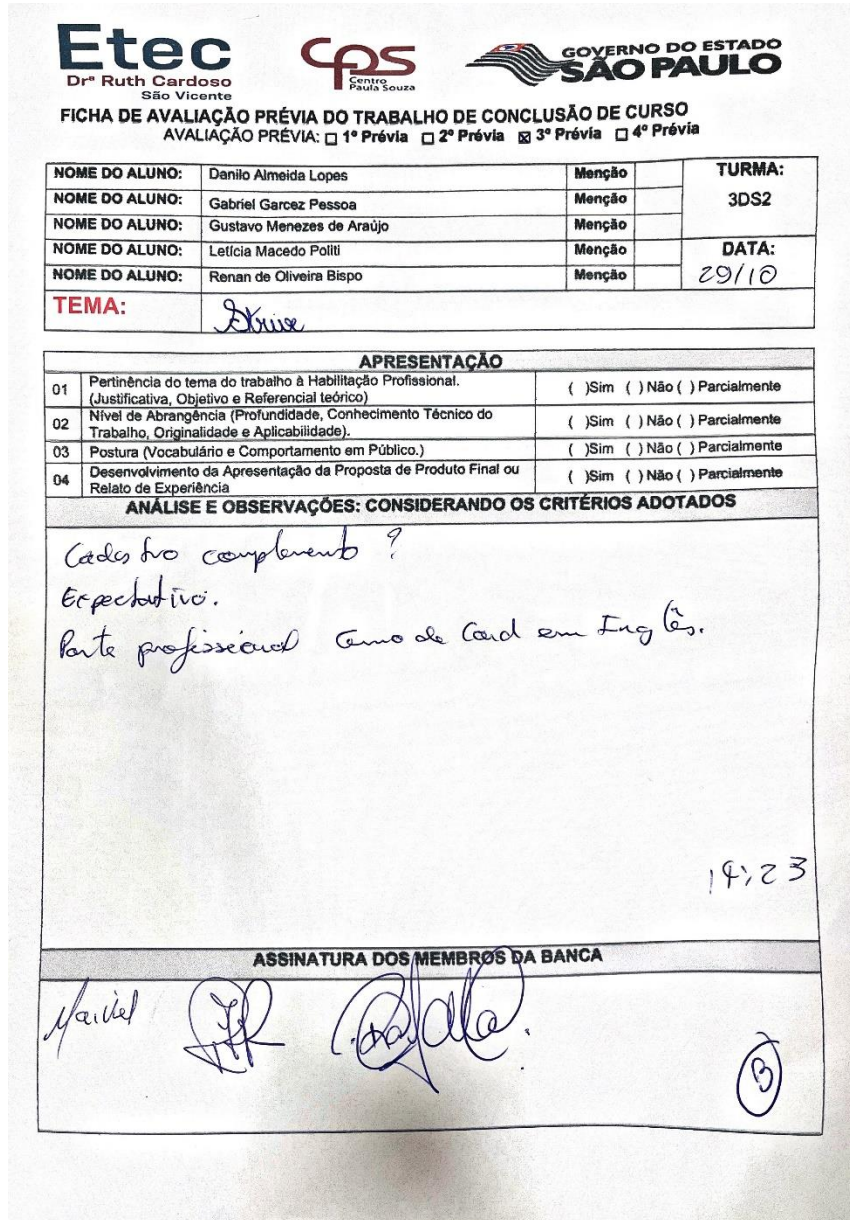 Etec
Drª Ruth Cardoso
São Vicente
CPS
Centro
Paula Souza
GOVERNO DO ESTADO
SÃO PAULO
FICHA DE AVALIAÇÃO PRÉVIA DO TRABALHO DE CONCLUSÃO DE CURSO
AVALIAÇÃO PRÉVIA: □ 1º Prévia □ 2º Prévia ☒ 3º Prévia □ 4º Prévia
NOME DO ALUNO: Danilo Almeida Lopes Menção TURMA:
NOME DO ALUNO: Gabriel Garcez Pessoa Menção 3DS2
NOME DO ALUNO: Gustavo Menezes de Araújo Menção
NOME DO ALUNO: Letícia Macedo Politi Menção DATA:
NOME DO ALUNO: Renan de Oliveira Bispo Menção 29/10
TEMA: Strive
APRESENTAÇÃO
01 Pertinência do tema do trabalho à Habilitação Profissional. ( )Sim ( ) Não ( ) Parcialmente
(Justificativa, Objetivo e Referencial teórico)
02 Nível de Abrangência (Profundidade, Conhecimento Técnico do ( )Sim ( ) Não ( ) Parcialmente
Trabalho, Originalidade e Aplicabilidade).
03 Postura (Vocabulário e Comportamento em Público.) ( )Sim ( ) Não ( ) Parcialmente
04 Desenvolvimento da Apresentação da Proposta de Produto Final ou ( )Sim ( ) Não ( ) Parcialmente
Relato de Experiência
ANÁLISE E OBSERVAÇÕES: CONSIDERANDO OS CRITÉRIOS ADOTADOS
Cadastro complemento ?
Expectativo.
Parte profissional de Card em Inglês.
19:23
ASSINATURA DOS MEMBROS DA BANCA
B